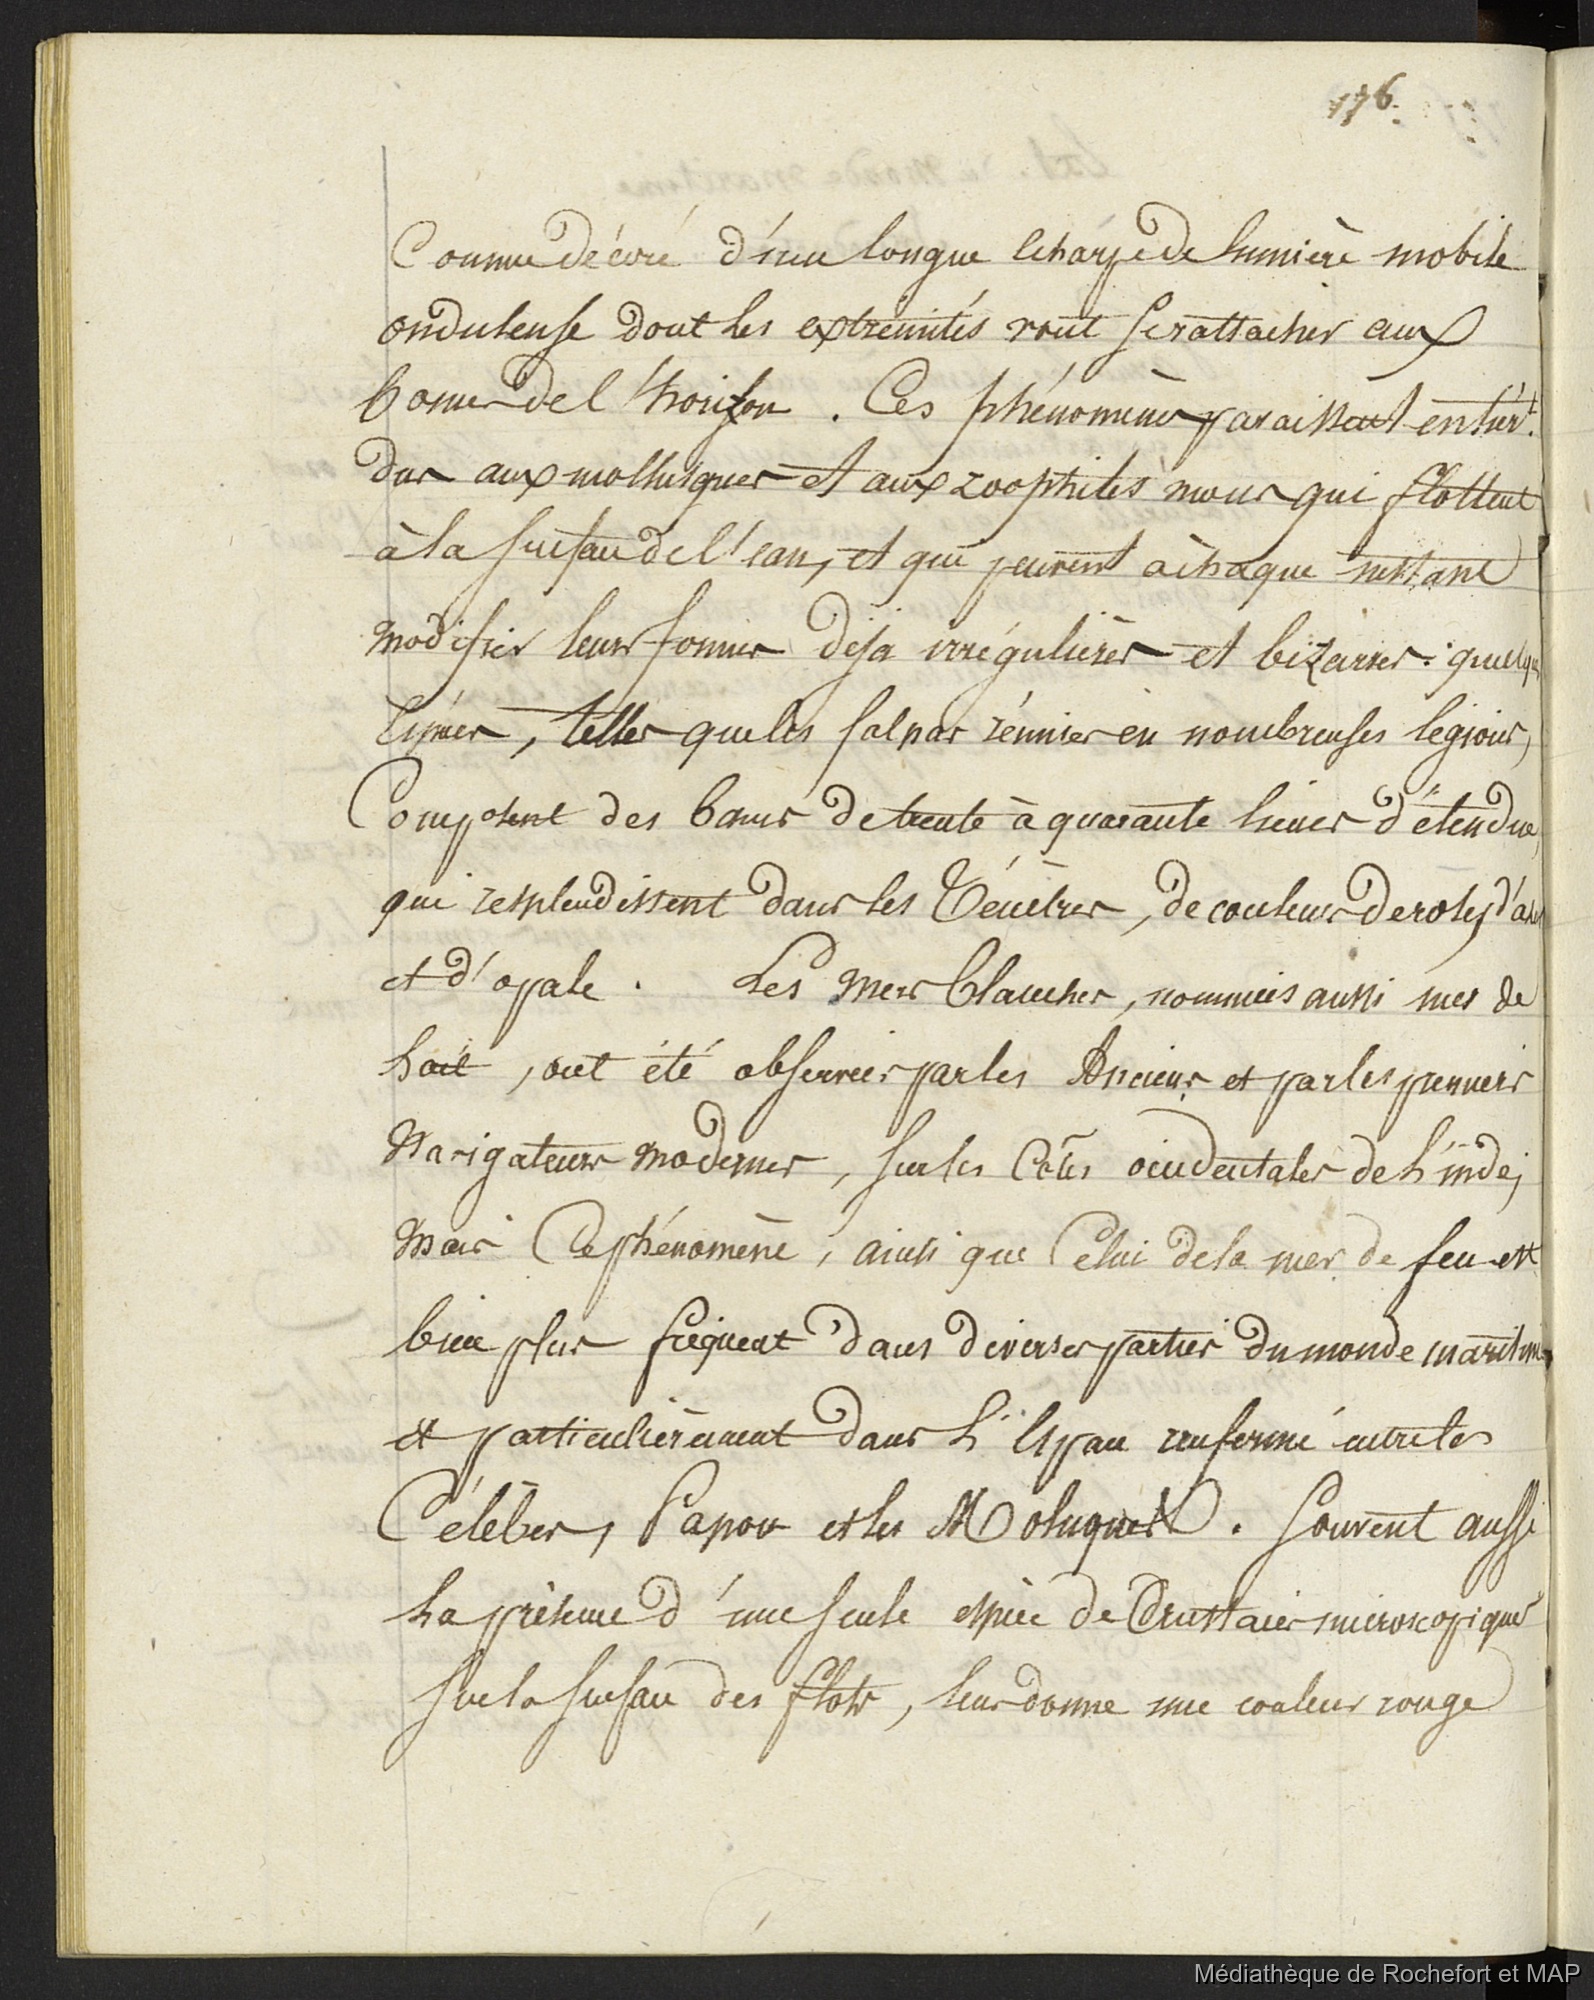 176.
Comme décoré d'une longue écharpe de lumière mobile
onduleuse dont les extrémités vont se rattacher aux
bornes de l'horizon. Ces phénomènes paraissent entièrt.
dus aux mollusques et aux zoophites mous qui flottent
à la surface de l'eau, et qui peuvent à chaque instant
modifier leurs formes déja irrégulières et bizarres: quelques
espèces, telles que les salpas réunies en nombreuses légions,
Composent des bancs de trente à quarante lieues d'étendue,
qui resplendissent dans les Ténèbres, de couleurs de roses, d'azur
et d'opale. Les mers blanches, nommées aussi mer de
lait, ont été observées par les Anciens et par les premiers
Navigateurs modernes, sur les Côtes occidentales de L'inde;
Mais Ce phénomène, ainsi que Celui de la mer de feu est
bien plus fréquent dans diverses parties du monde maritime
et particulièrement dans L'Espace renfermé entre les
Célèbes, Papou et les Moluques. Souvent aussi
La présence d'une seule espèce de Crustacés microscopiques
sur la surface des flots, leur donne une couleur rouge
Médiathèque de Rochefort et MAP